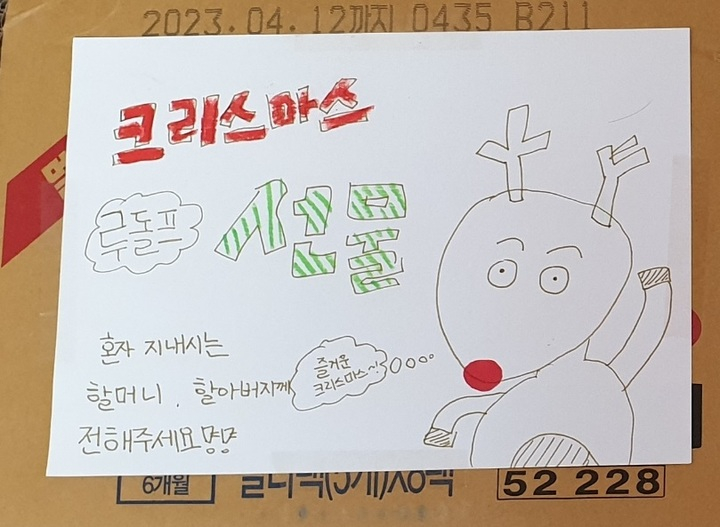 2023.04.12까지 0435 B211
크리스마스
루돌프
선물
혼자 지내시는
할머니, 할아버지께
전해주세요
즐거운
크리스마스~!
6개월
멀티팩(5개)X8팩
52 228